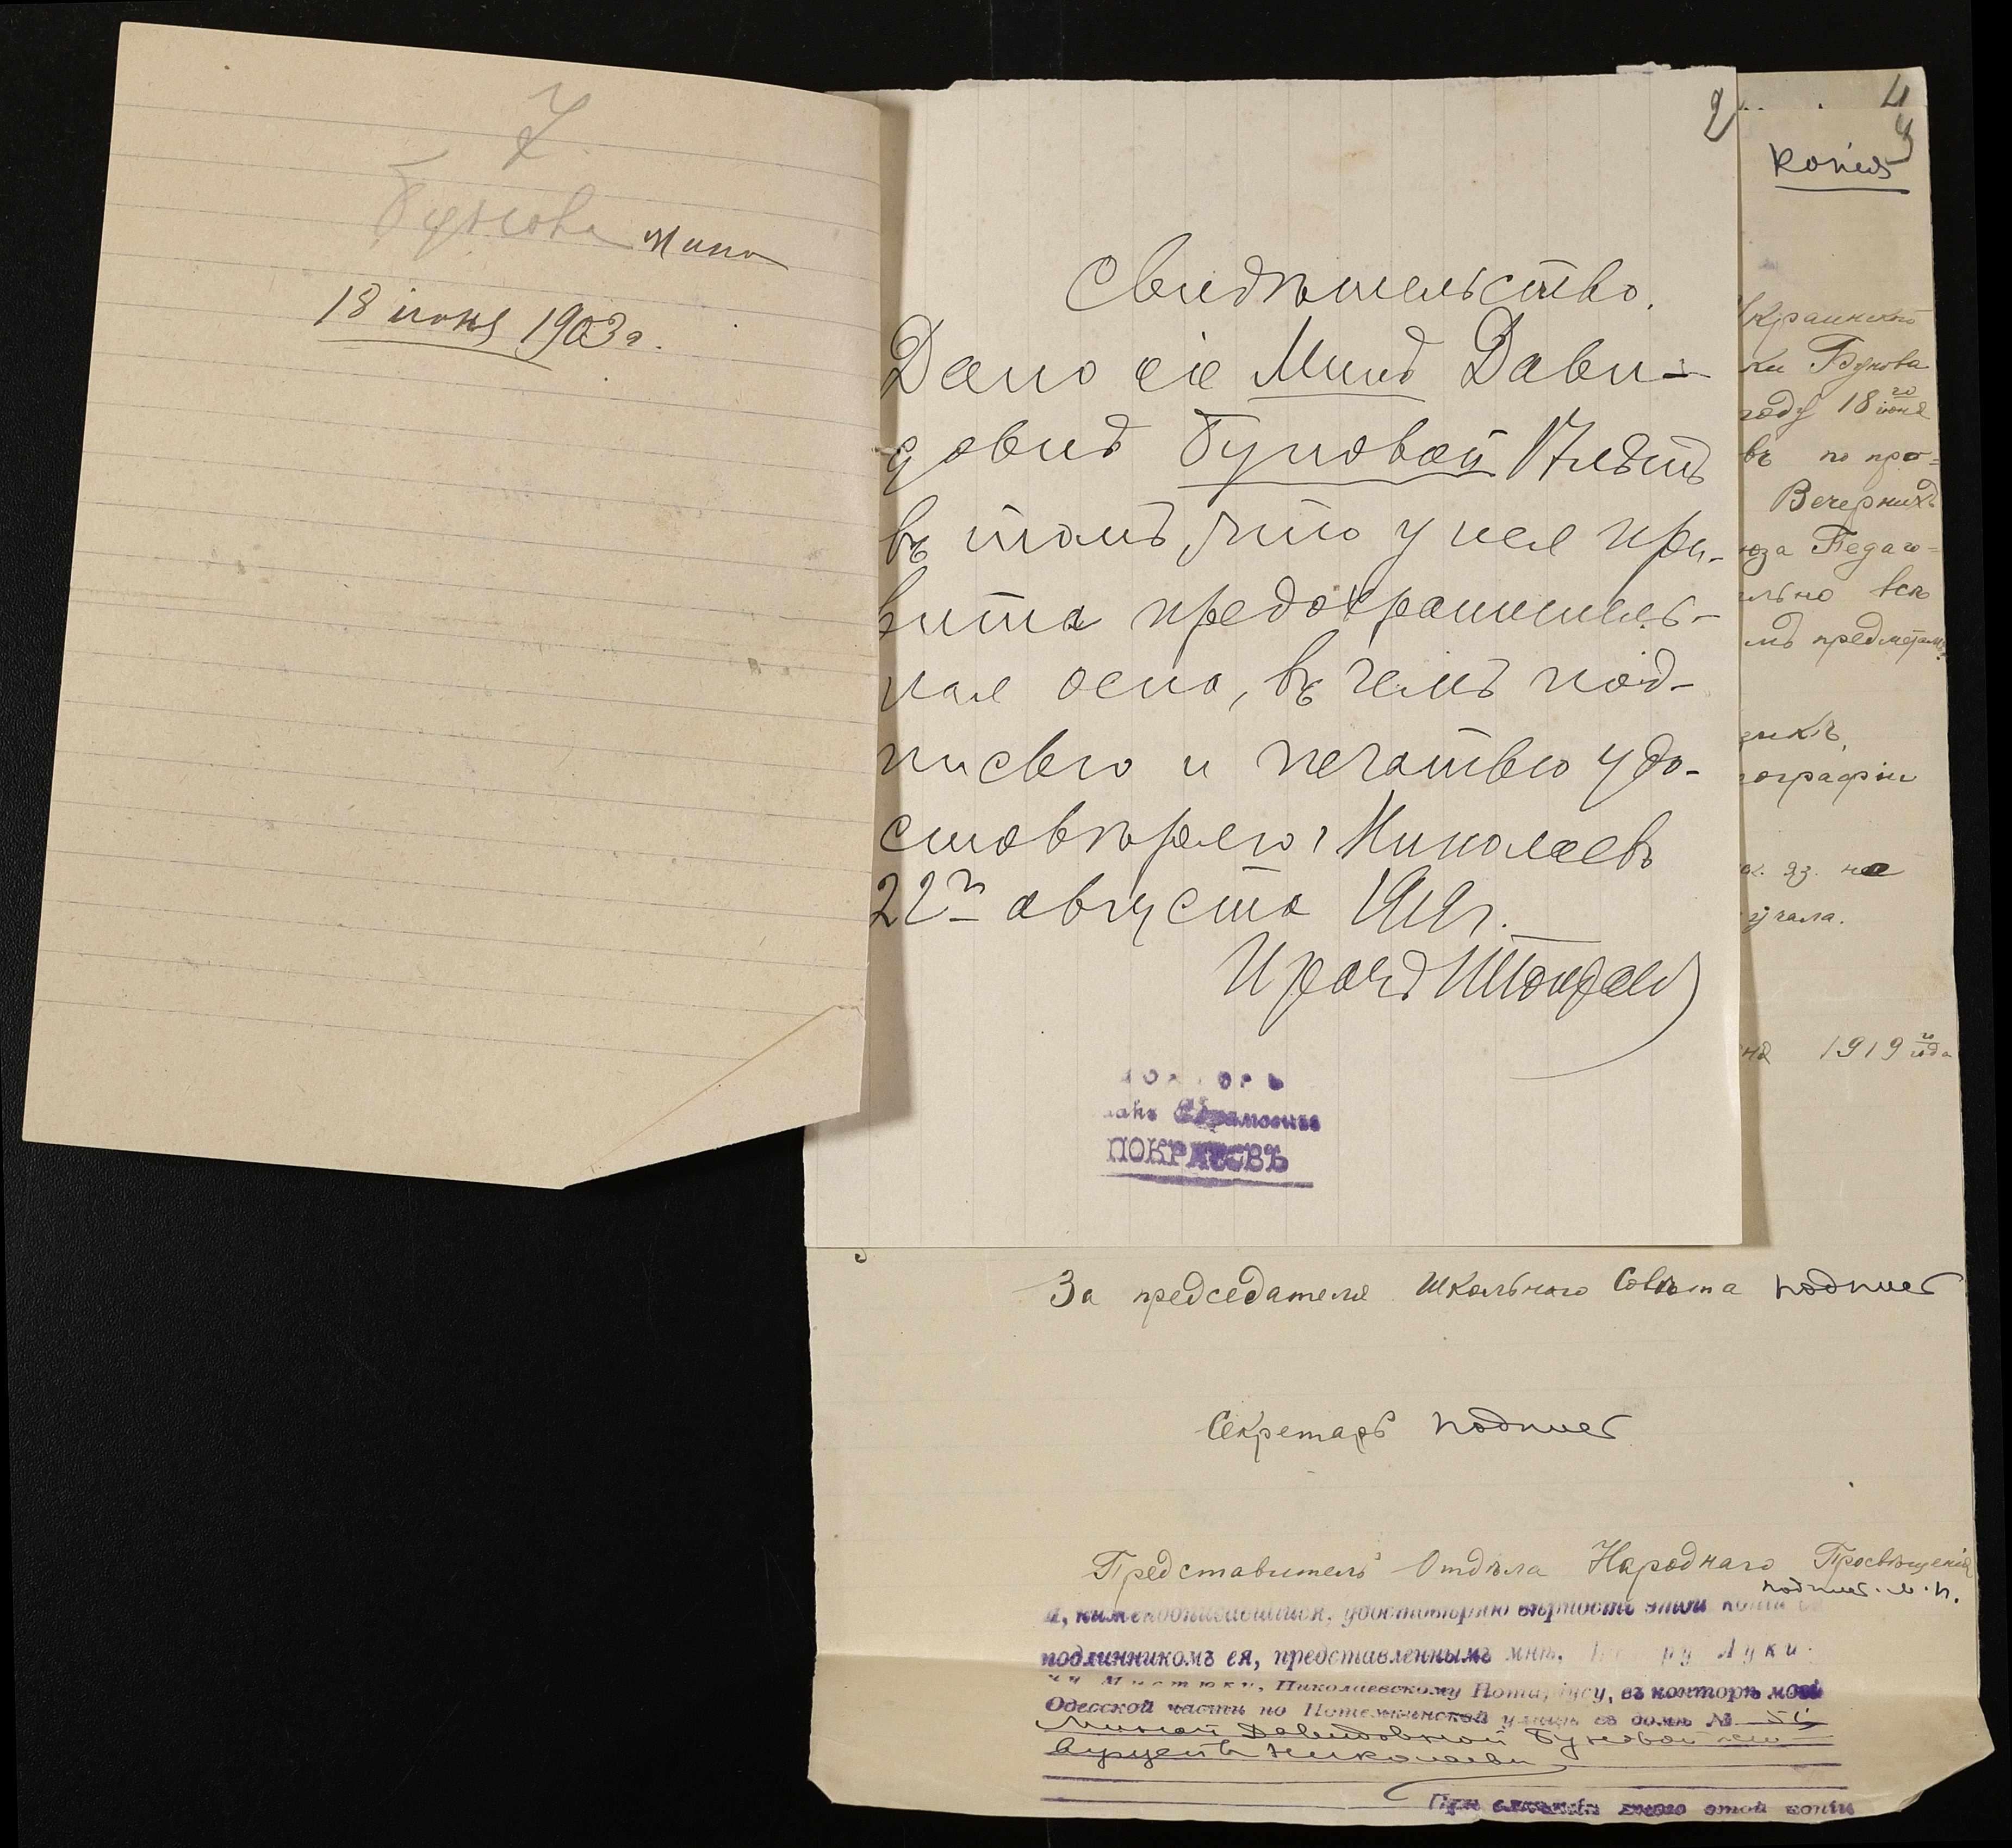 7
Букова Мина
18 іюня 1903 г.
2
Свидѣтельство.
Дано сіе Минѣ Дави-
довнѣ Буковой 17 лѣтъ
въ томъ, что у нея при-
вита предохранитель-
ная оспа, въ чемъ под-
писью и печатью удо-
стовѣряю г. Николаевъ
22го августа 1919 г.
Врачъ
ПОКРАСОВЪ
4
Копія
Украинской
ки Букова
году 18го іюня
въ по про=
Вечернихъ
юза Педаго=
ельно всѣ
мъ предметамъ:
зыкъ,
географіи
яз. не
зучала.
1919 года
За председателя Школьного Совѣта подпись
Секретарь подпись
Представитель Отдѣла Народнаго Просвѣщенія
подпись. М. П.
Я, нижеподписавшійся, удостовѣряю вѣрность этой копіи съ
подлинникомъ ея, представленнымъ мнѣ, Луки
Николаевскому Нотаріусу, въ конторѣ моей
Одесской части по Потемкинской улицѣ въ домѣ №
Миной Давидовной Буковой
При сличеніи мною этой копіи